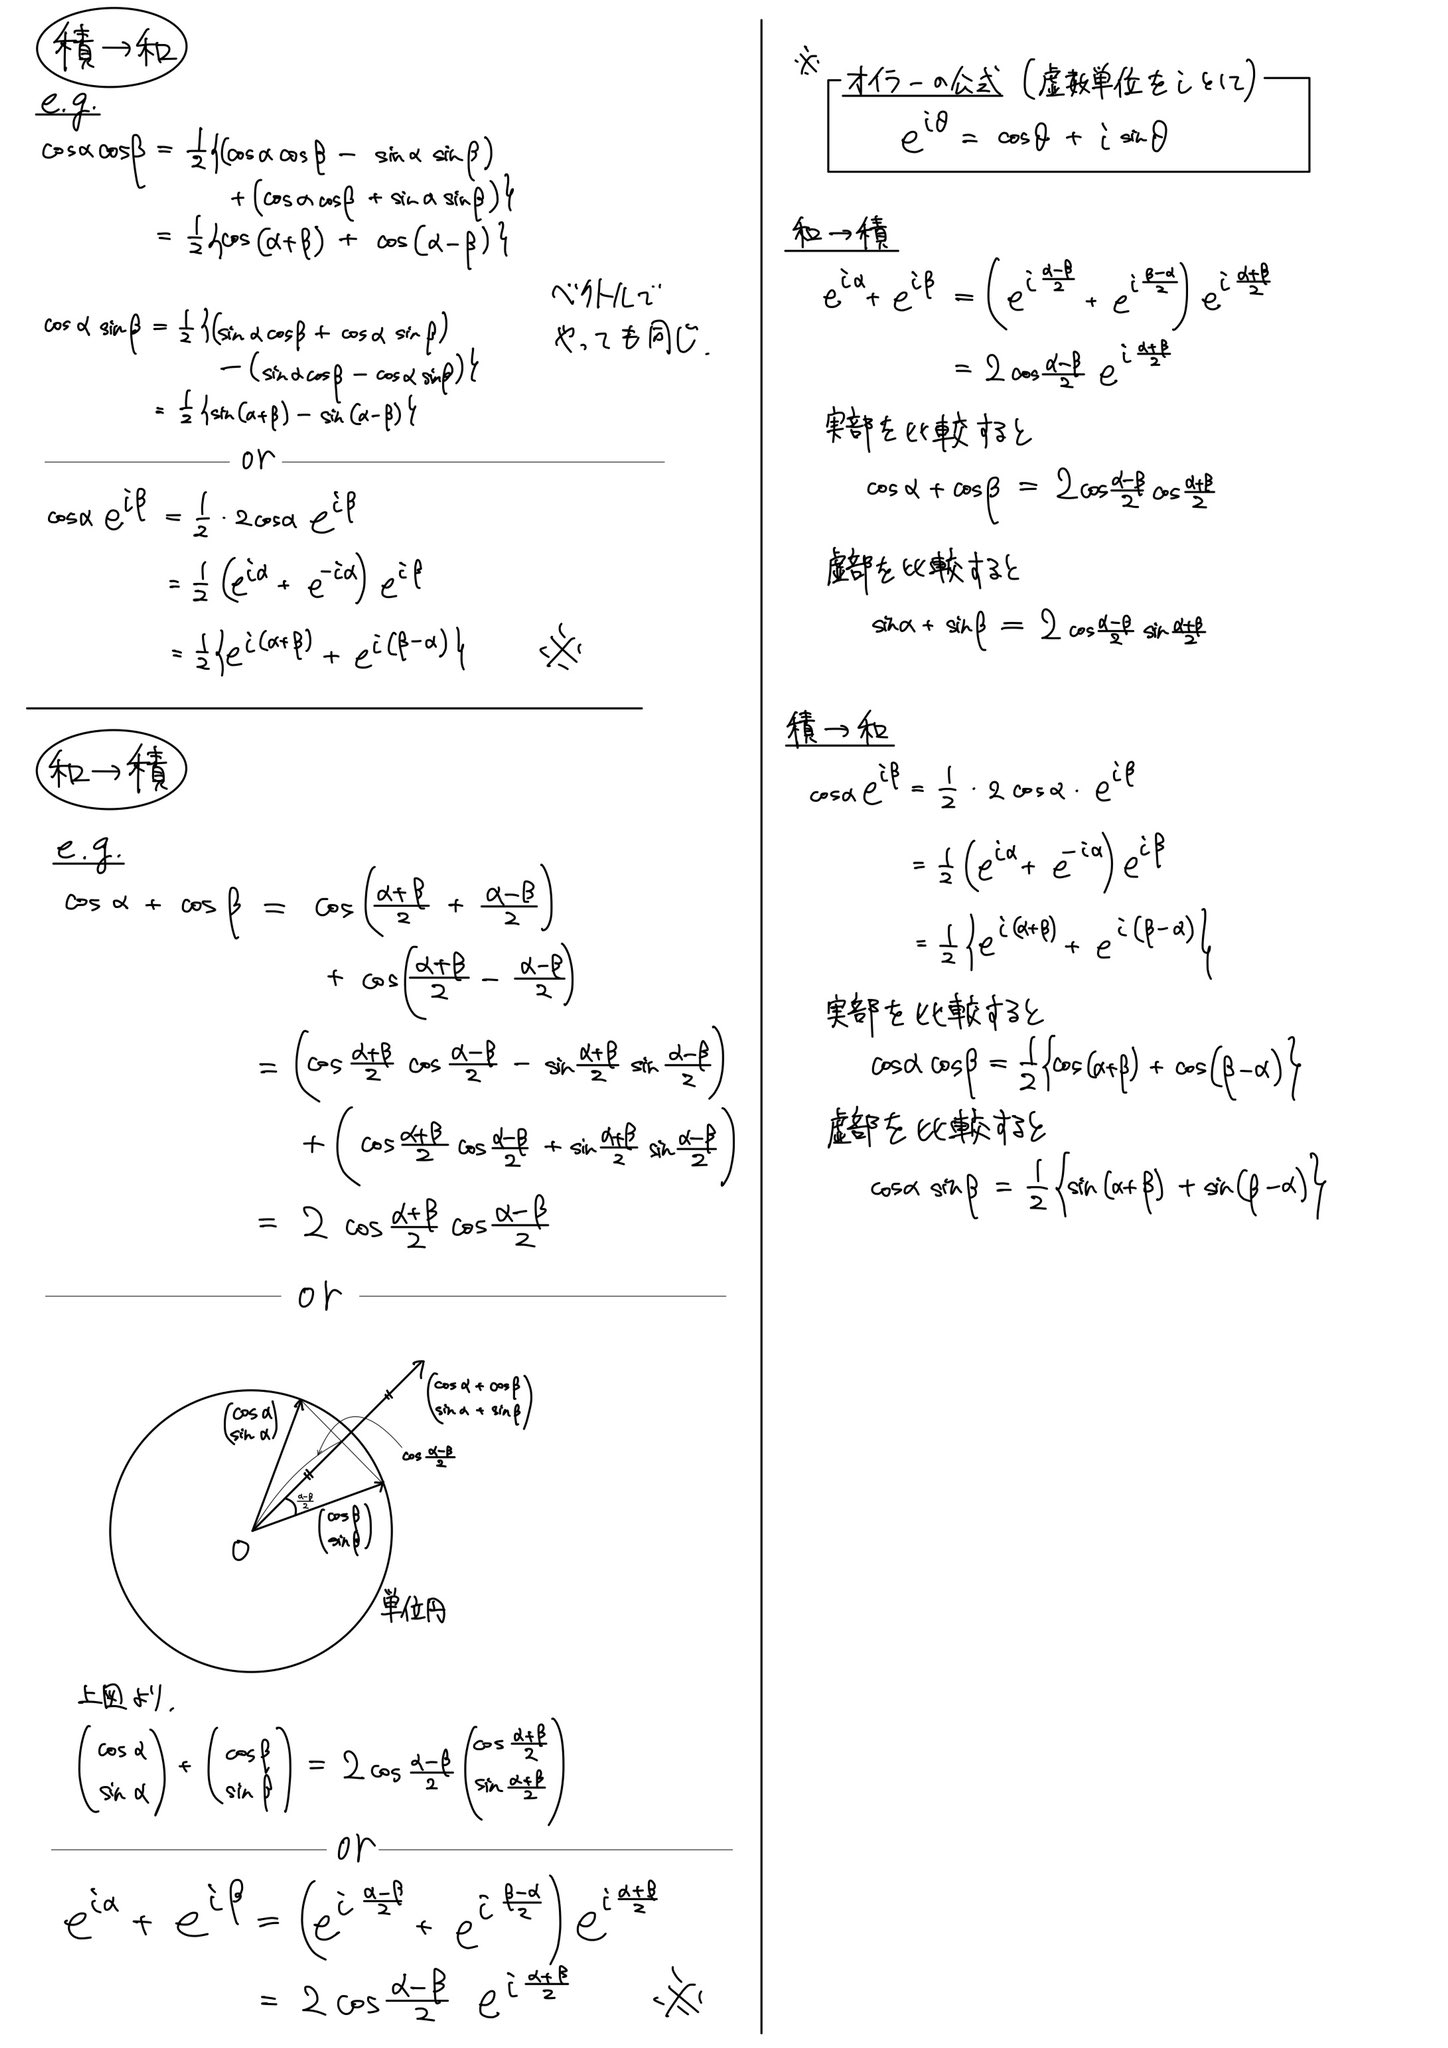 積→和
e.g.
cosα cosβ = 1/2{(cosα cosβ − sinα sinβ)
+ (cosα cosβ + sinα sinβ)}
= 1/2{cos(α+β) + cos(α−β)}
cosα sinβ = 1/2{(sinα cosβ + cosα sinβ)
−(sinα cosβ − cosα sinβ)}
= 1/2{sin(α+β) − sin(α−β)}
ベクトルで
やっても同じ.
or
cosα e^{iβ} = 1/2 · 2cosα e^{iβ}
= 1/2 (e^{iα} + e^{−iα}) e^{iβ}
= 1/2{e^{i(α+β)} + e^{i(β−α)}} ※
和→積
e.g.
cosα + cosβ = cos((α+β)/2 + (α−β)/2)
+ cos((α+β)/2 − (α−β)/2)
= (cos (α+β)/2 cos (α−β)/2 − sin (α+β)/2 sin (α−β)/2)
+ (cos (α+β)/2 cos (α−β)/2 + sin (α+β)/2 sin (α−β)/2)
= 2 cos (α+β)/2 cos (α−β)/2
or
(cosα + cosβ
sinα + sinβ)
(cosα
sinα)
cos (α−β)/2
(α−β)/2
(cosβ
sinβ)
O
単位円
上図より.
(cosα sinα) + (cosβ sinβ) = 2cos (α−β)/2 (cos (α+β)/2 sin (α+β)/2)
or
e^{iα} + e^{iβ} = (e^{i(α−β)/2} + e^{i(β−α)/2}) e^{i(α+β)/2}
= 2cos (α−β)/2 e^{i(α+β)/2} ※
※
オイラーの公式 (虚数単位をiとして)
e^{iθ} = cosθ + i sinθ
和→積
e^{iα} + e^{iβ} = (e^{i(α−β)/2} + e^{i(β−α)/2}) e^{i(α+β)/2}
= 2cos (α−β)/2 e^{i(α+β)/2}
実部を比較すると
cosα + cosβ = 2cos (α−β)/2 cos (α+β)/2
虚部を比較すると
sinα + sinβ = 2cos (α−β)/2 sin (α+β)/2
積→和
cosα e^{iβ} = 1/2 · 2cosα · e^{iβ}
= 1/2 (e^{iα} + e^{−iα}) e^{iβ}
= 1/2{e^{i(α+β)} + e^{i(β−α)}}
実部を比較すると
cosα cosβ = 1/2{cos(α+β) + cos(β−α)}
虚部を比較すると
cosα sinβ = 1/2{sin(α+β) + sin(β−α)}